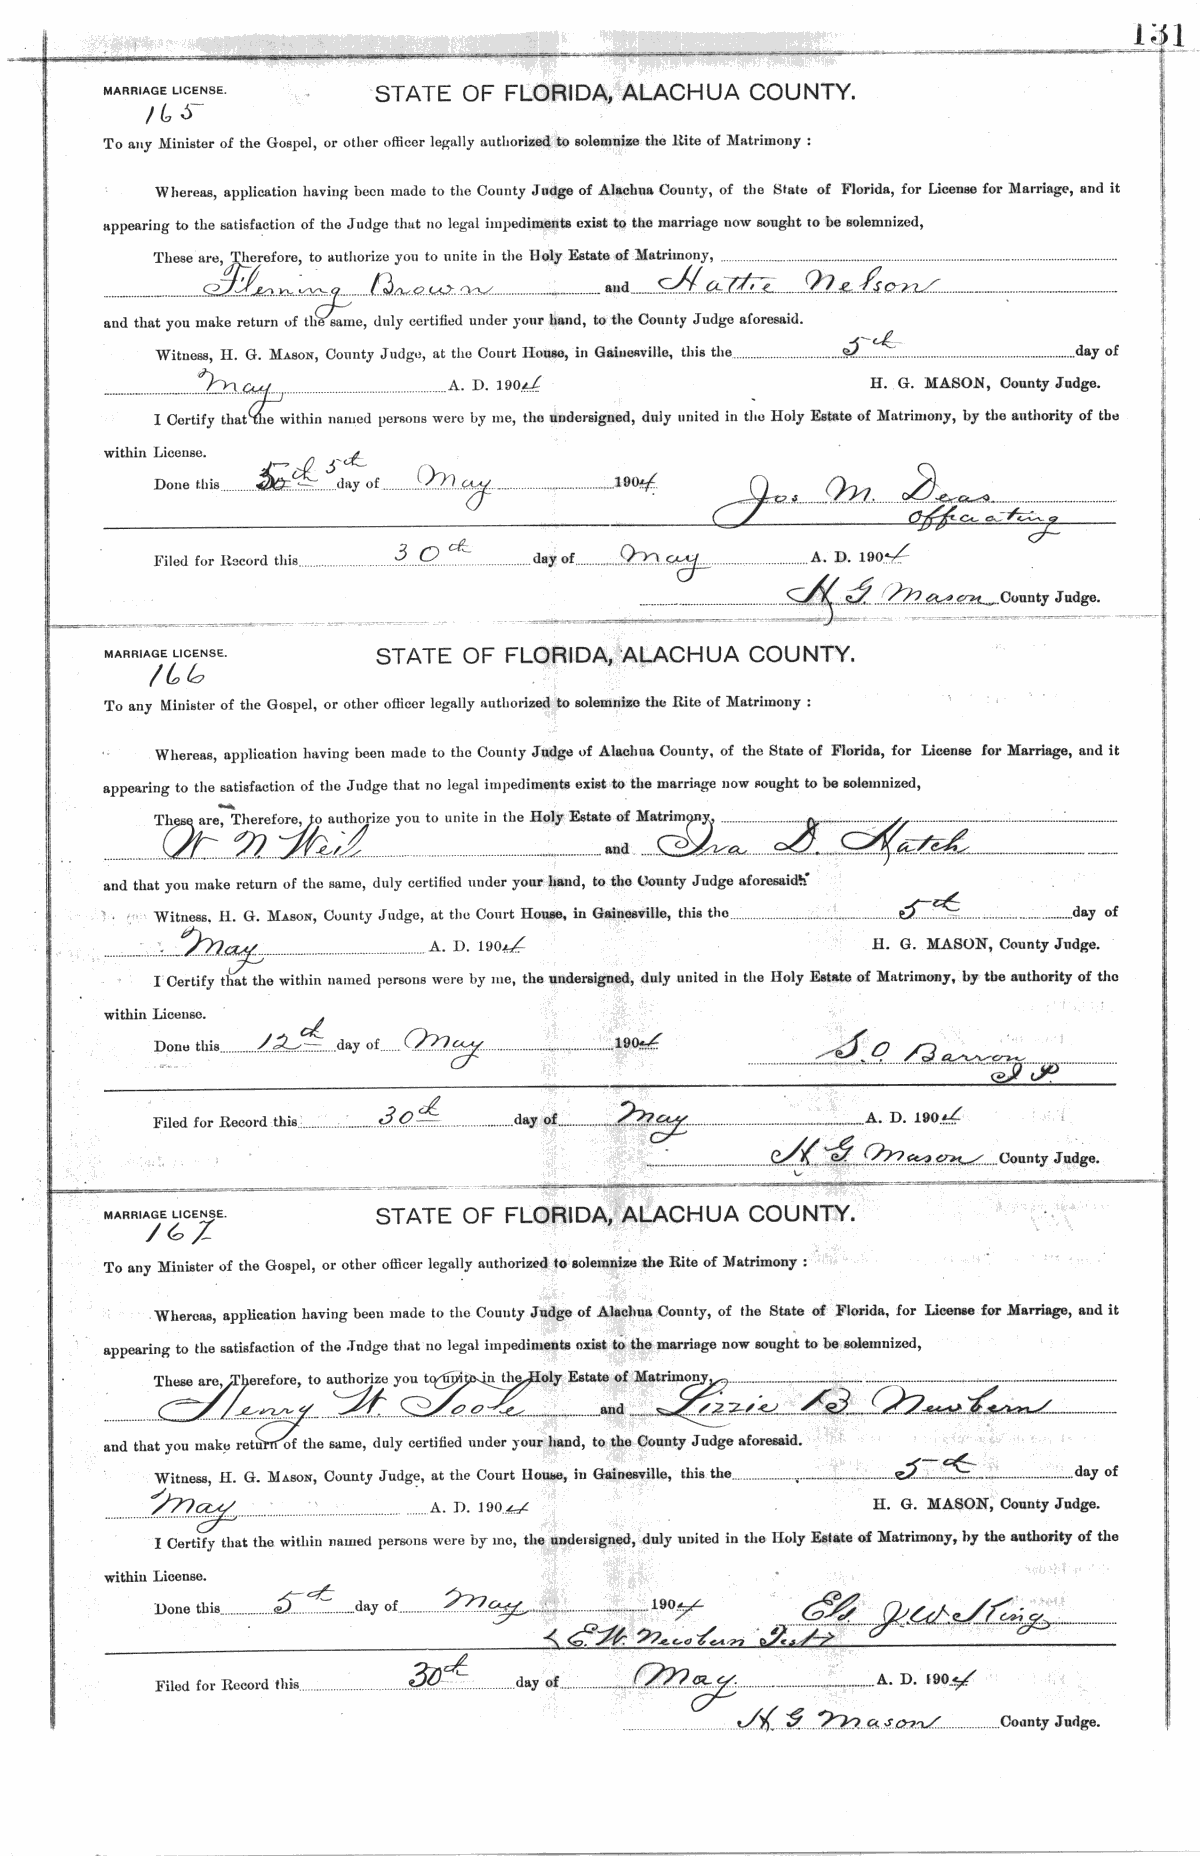 131
MARRIAGE LICENSE. STATE OF FLORIDA, ALACHUA COUNTY.
165
To any Minister of the Gospel, or other officer legally authorized to solemnize the Rite of Matrimony :
Whereas, application having been made to the County Judge of Alachua County, of the State of Florida, for License for Marriage, and it
appearing to the satisfaction of the Judge that no legal impediments exist to the marriage now sought to be solemnized,
These are, Therefore, to authorize you to unite in the Holy Estate of Matrimony,
Fleming Brown and Hattie Nelson
and that you make return of the same, duly certified under your hand, to the County Judge aforesaid.
Witness, H. G. MASON, County Judge, at the Court House, in Gainesville, this the 5th day of
May A. D. 1904 H. G. MASON, County Judge.
I Certify that the within named persons were by me, the undersigned, duly united in the Holy Estate of Matrimony, by the authority of the
within License.
Done this 5th day of May 1904 Jos M. Deas
officiating
Filed for Record this 30th day of May A. D. 1904
H G Mason County Judge.
MARRIAGE LICENSE. STATE OF FLORIDA, ALACHUA COUNTY.
166
To any Minister of the Gospel, or other officer legally authorized to solemnize the Rite of Matrimony :
Whereas, application having been made to the County Judge of Alachua County, of the State of Florida, for License for Marriage, and it
appearing to the satisfaction of the Judge that no legal impediments exist to the marriage now sought to be solemnized,
These are, Therefore, to authorize you to unite in the Holy Estate of Matrimony,
W N Weil and Iva D. Hatch
and that you make return of the same, duly certified under your hand, to the County Judge aforesaid.
Witness, H. G. MASON, County Judge, at the Court House, in Gainesville, this the 5th day of
May A. D. 1904 H. G. MASON, County Judge.
I Certify that the within named persons were by me, the undersigned, duly united in the Holy Estate of Matrimony, by the authority of the
within License.
Done this 12th day of May 1904 S. O. Barron
J P.
Filed for Record this 30th day of May A. D. 1904
H G Mason County Judge.
MARRIAGE LICENSE. STATE OF FLORIDA, ALACHUA COUNTY.
167
To any Minister of the Gospel, or other officer legally authorized to solemnize the Rite of Matrimony :
Whereas, application having been made to the County Judge of Alachua County, of the State of Florida, for License for Marriage, and it
appearing to the satisfaction of the Judge that no legal impediments exist to the marriage now sought to be solemnized,
These are, Therefore, to authorize you to unite in the Holy Estate of Matrimony,
Henry W. Toole and Lizzie B. Newbern
and that you make return of the same, duly certified under your hand, to the County Judge aforesaid.
Witness, H. G. MASON, County Judge, at the Court House, in Gainesville, this the 5th day of
May A. D. 1904 H. G. MASON, County Judge.
I Certify that the within named persons were by me, the undersigned, duly united in the Holy Estate of Matrimony, by the authority of the
within License.
Done this 5th day of May 1904 Eld. J. W. King
E. W. Newbern Test
Filed for Record this 30th day of May. A. D. 1904
H G Mason County Judge.